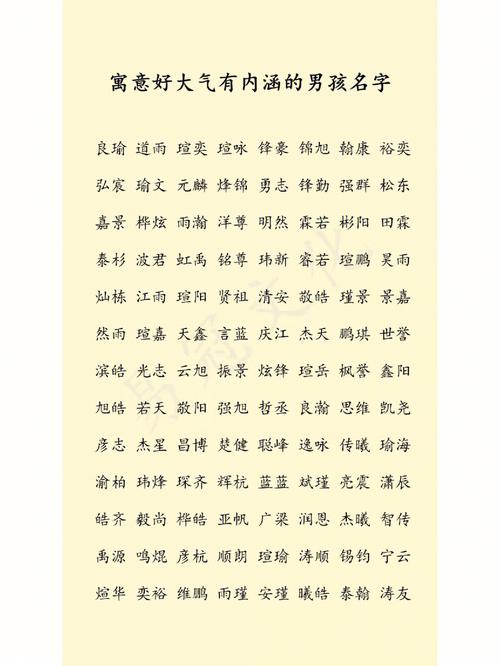 寓意好大气有内涵的男孩名字
良瑜 道雨 瑄奕 瑄咏 锋豪 锦旭 翰康 裕奕
弘宸 瑜文 元麟 烽锦 勇志 锋勤 强群 松东
嘉景 桦炫 雨瀚 洋尊 明然 霖若 彬阳 田霖
泰杉 波君 虹禹 铭尊 玮新 睿若 瑄鹏 昊雨
灿栋 江雨 瑄阳 贤祖 清安 敬皓 瑾景 景嘉
然雨 瑄嘉 天鑫 言蓝 庆江 杰天 鹏琪 世誉
滨皓 光志 云旭 振景 炫锋 瑄岳 枫誉 鑫阳
旭皓 若天 敬阳 强旭 哲丞 良瀚 思维 凯尧
彦志 杰星 昌博 楚健 聪峰 逸咏 传曦 瑜海
渝柏 玮烽 琛齐 辉杭 蓝蓝 斌瑾 亮震 潇辰
皓齐 毅尚 桦皓 亚帆 广梁 润恩 杰曦 智传
禹源 鸣焜 彦杭 顺朗 瑄瑜 涛顺 锡钧 宁云
煊华 奕裕 维鹏 雨瑾 安瑾 曦皓 泰翰 涛友